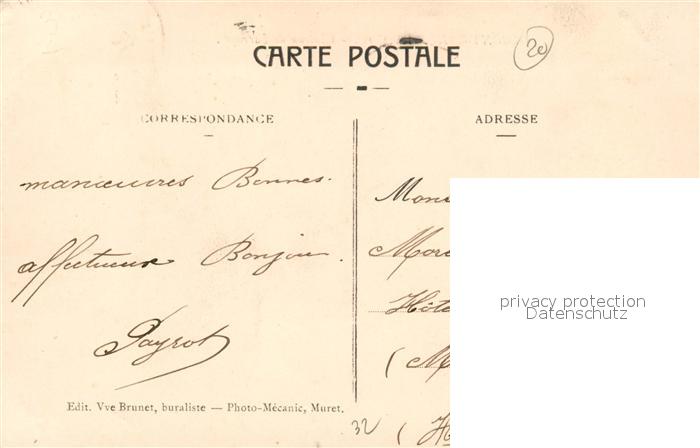 CARTE POSTALE
20
CORRESPONDANCE
ADRESSE
manœuvres Bonnes.
affectueux Bonjour.
Payrot
Edit. Vve Brunet, buraliste — Photo-Mécanic, Muret.
32
privacy protection
Datenschutz